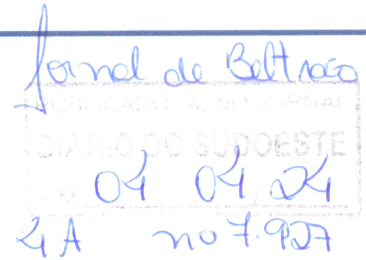 Jornal de Beltrão
PUBLICADO(A) NO JORNAL
DIÁRIO DO SUDOESTE
EM 04 04 24
4A nº 7.927